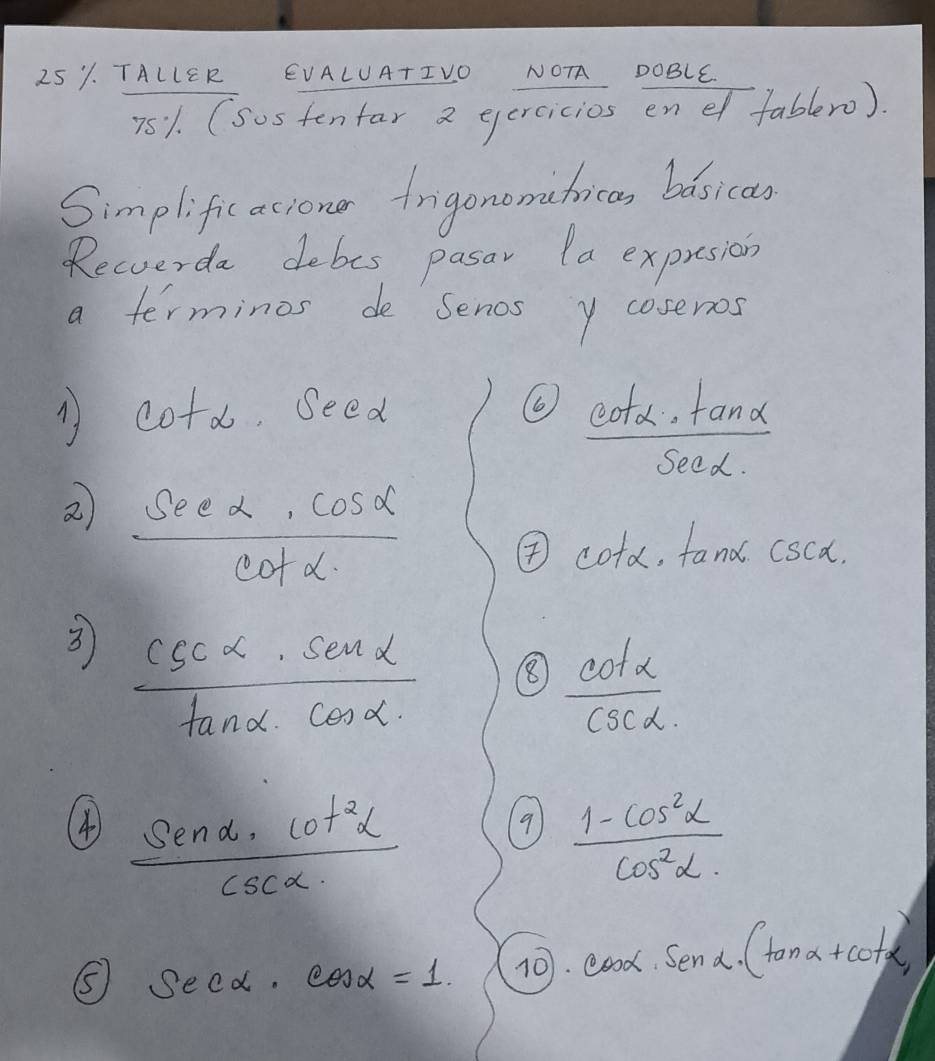 25 %. TALLER EVALUATIVO NOTA DOBLE.
75%. (Sustentar 2 ejercicios en el tablero).
Simplificaciones trigonométricas básicas.
Recuerda debes pasar la expresión
a términos de Senos y cosenos
1) cot α . Sec α
2) Sec α . cos α / cot α.
3) csc α . sen α / tan α. cos α.
④ Sen α. cot² α / csc α.
⑤ Sec α . cos α = 1.
⑥ cot α . tan α / Sec α.
⑦ cot α . tan α. csc α.
⑧ cot α / csc α.
⑨ 1 - cos² α / cos² α.
⑩. cos α . Sen α. (tan α + cot α)